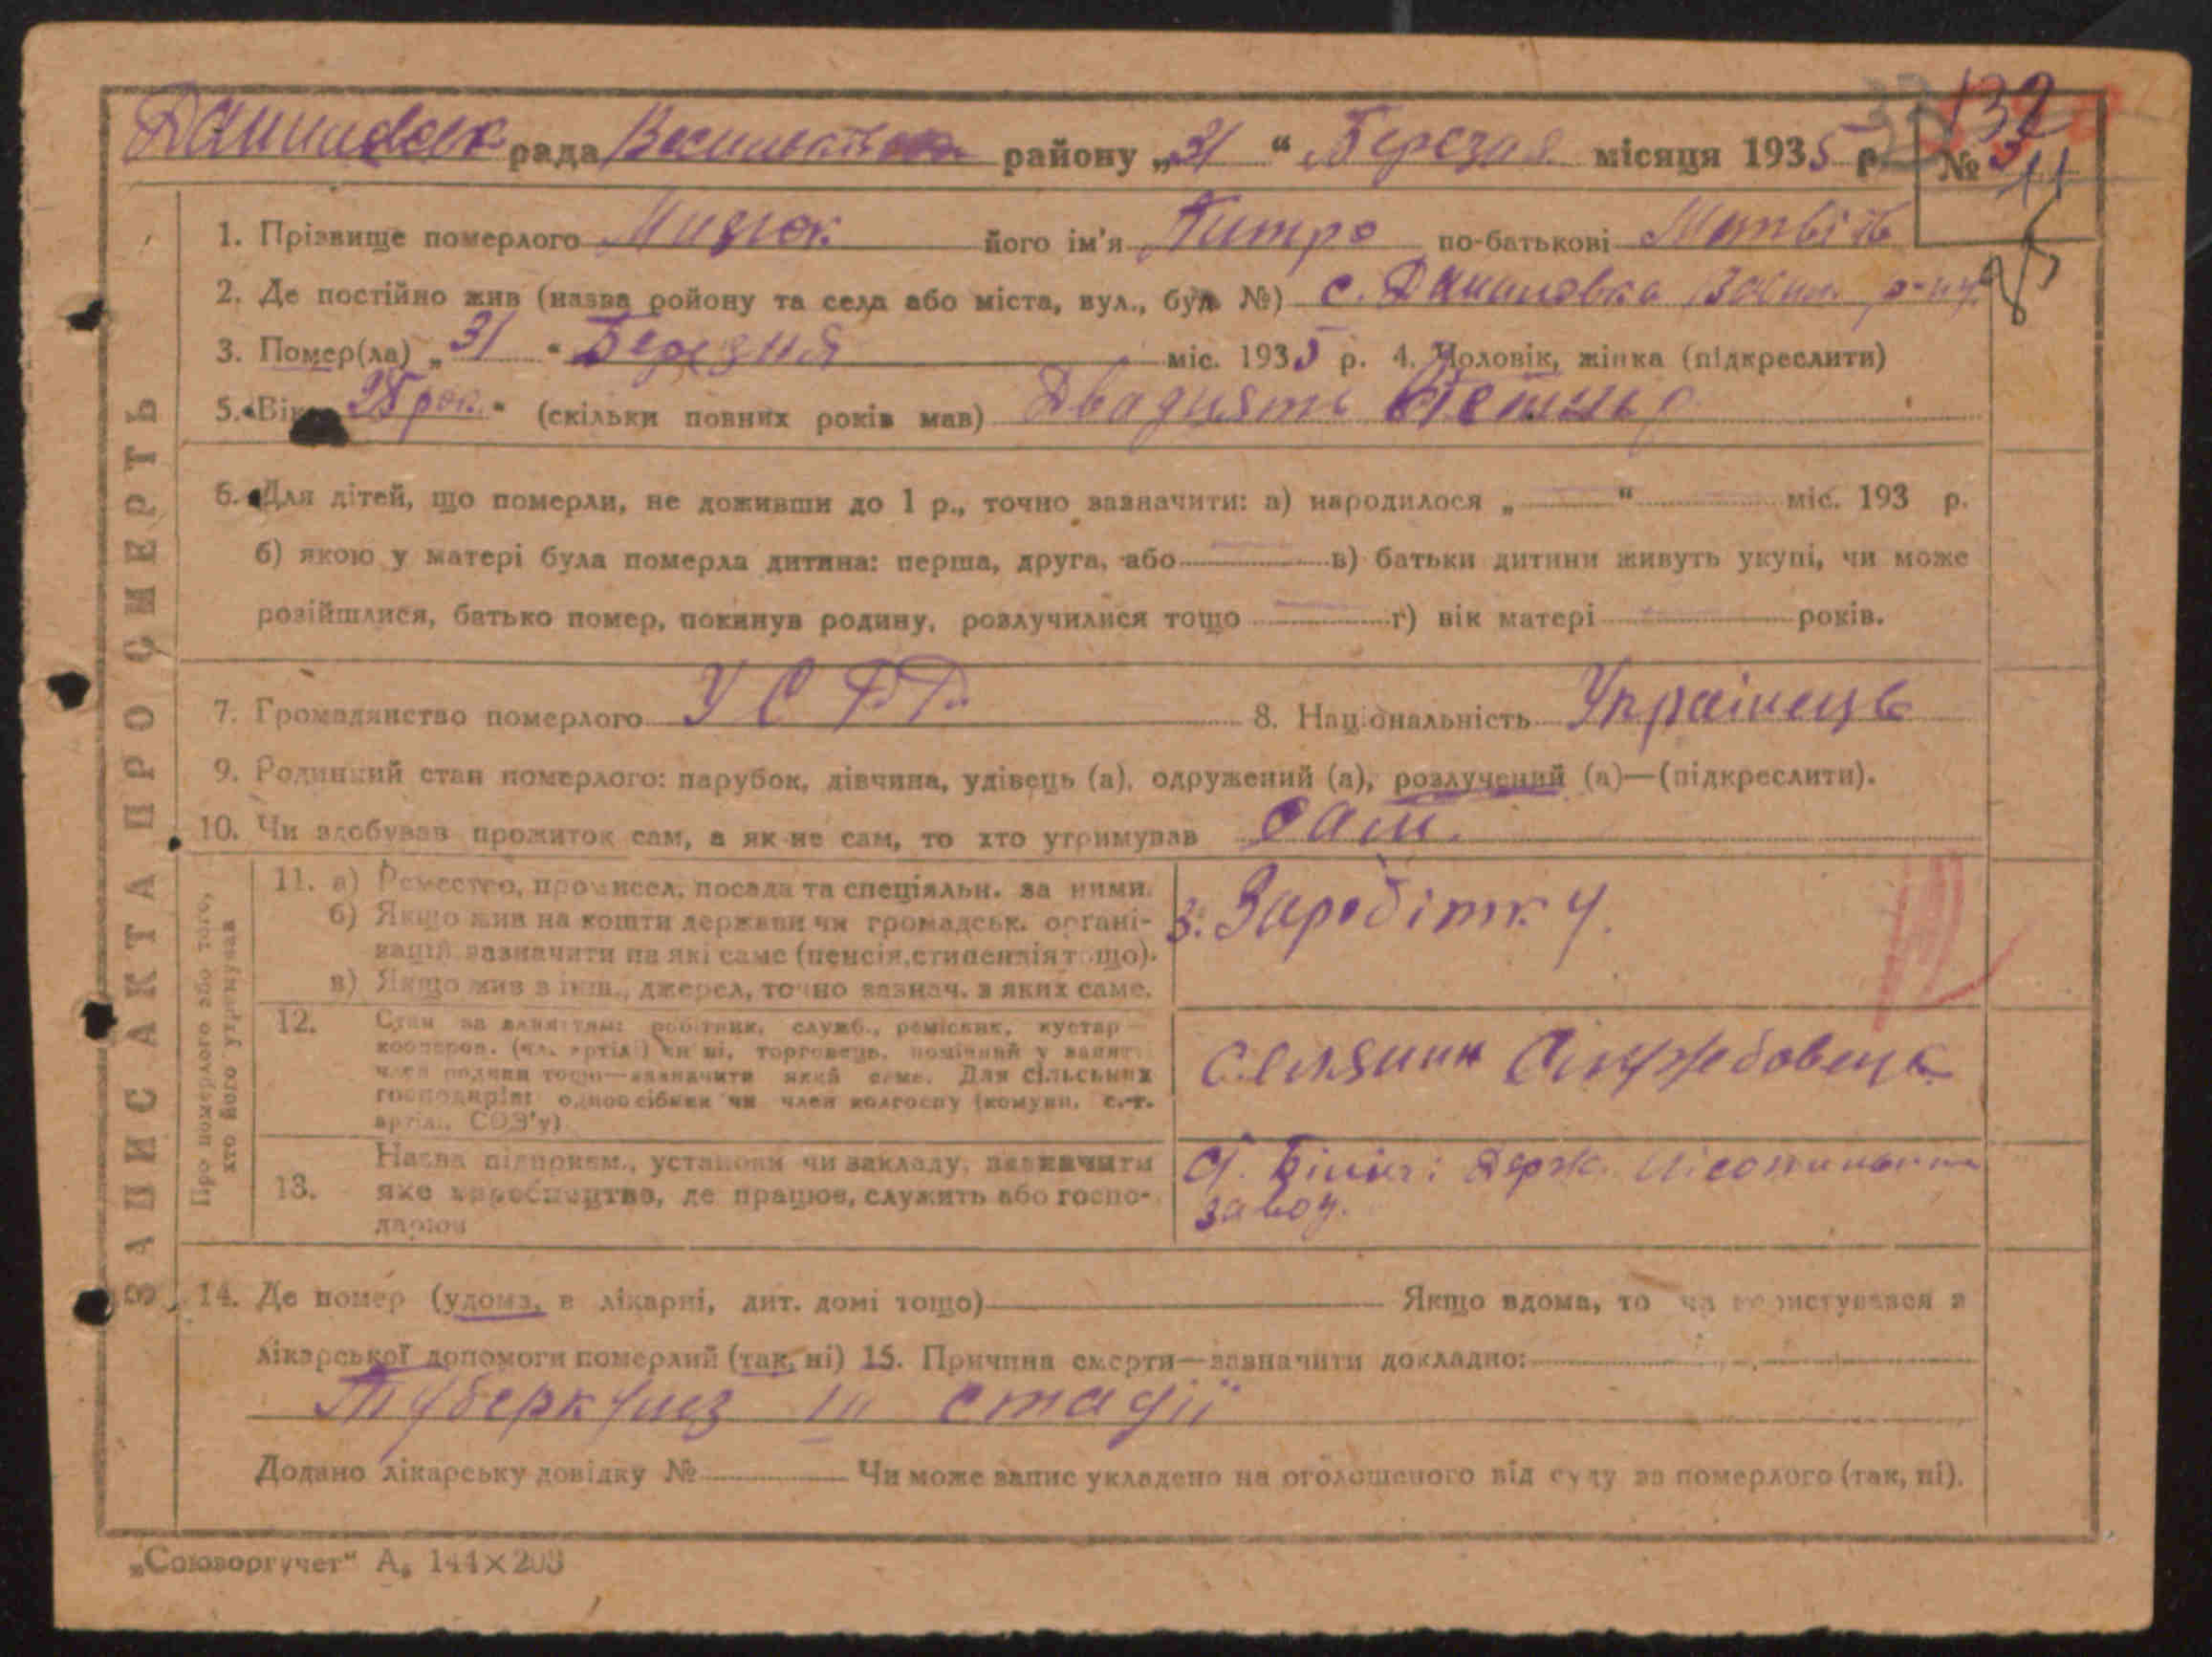 рада району „31“ Березня місяця 1935 р. №
132
1. Прізвище померлого його ім'я по-батькові
2. Де постійно жив (назва ройону та села або міста, вул., буд. №) с. Даниловка
3. Помер(ла) „31“ Березня міс. 1935 р. 4. Чоловік, жінка (підкреслити)
5. Вік рок. (скільки повних років мав) Двадцять
6. Для дітей, що померли, не доживши до 1 р., точно зазначити: а) народилося „ “ міс. 193 р.
б) якою у матері була померла дитина: перша, друга, або в) батьки дитини живуть укупі, чи може
розійшлися, батько помер, покинув родину, розлучилися тощо г) вік матері років.
7. Громадянство померлого 8. Національність Українець
9. Родинний стан померлого: парубок, дівчина, удівець (а), одружений (а), розлучений (а)—(підкреслити).
10. Чи здобував прожиток сам, а як не сам, то хто утримував сам.
Про померлого або того,
хто його утримував
11. а) Ремество, промисел, посада та спеціяльн. за ними.
б) Якщо жив на кошти держави чи громадськ. органі-
зацій зазначити на які саме (пенсія, стипендія тощо).
в) Якщо жив з інш., джерел, точно зазнач. з яких саме.
З. Заробітку.
12. Стан за заняттям: робітник, служб., ремісник, кустар
кооперов. (чл. артілі) чи ні, торговець,
член родини тощо—зазначити який саме. Для сільських
господарів: одноосібник чи член колгоспу (комуни, с.-г.
артіль, СОЗ'у)
селянин
13. Назва підприєм., установи чи закладу, зазначити
яке виробництво, де працює, служить або госпо-
дарює
Держ.
завод.
14. Де помер (удома, в лікарні, дит. домі тощо) Якщо вдома, то чи користувався з
лікарської допомоги померлий (так, ні) 15. Причина смерти—зазначити докладно:
Туберкульз III стадії
Додано лікарську довідку № Чи може запис укладено на оголошеного від суду за померлого (так, ні).
ЗАПИС АКТА ПРО СМЕРТЬ
„Союзоргучет“ А₅ 144×203